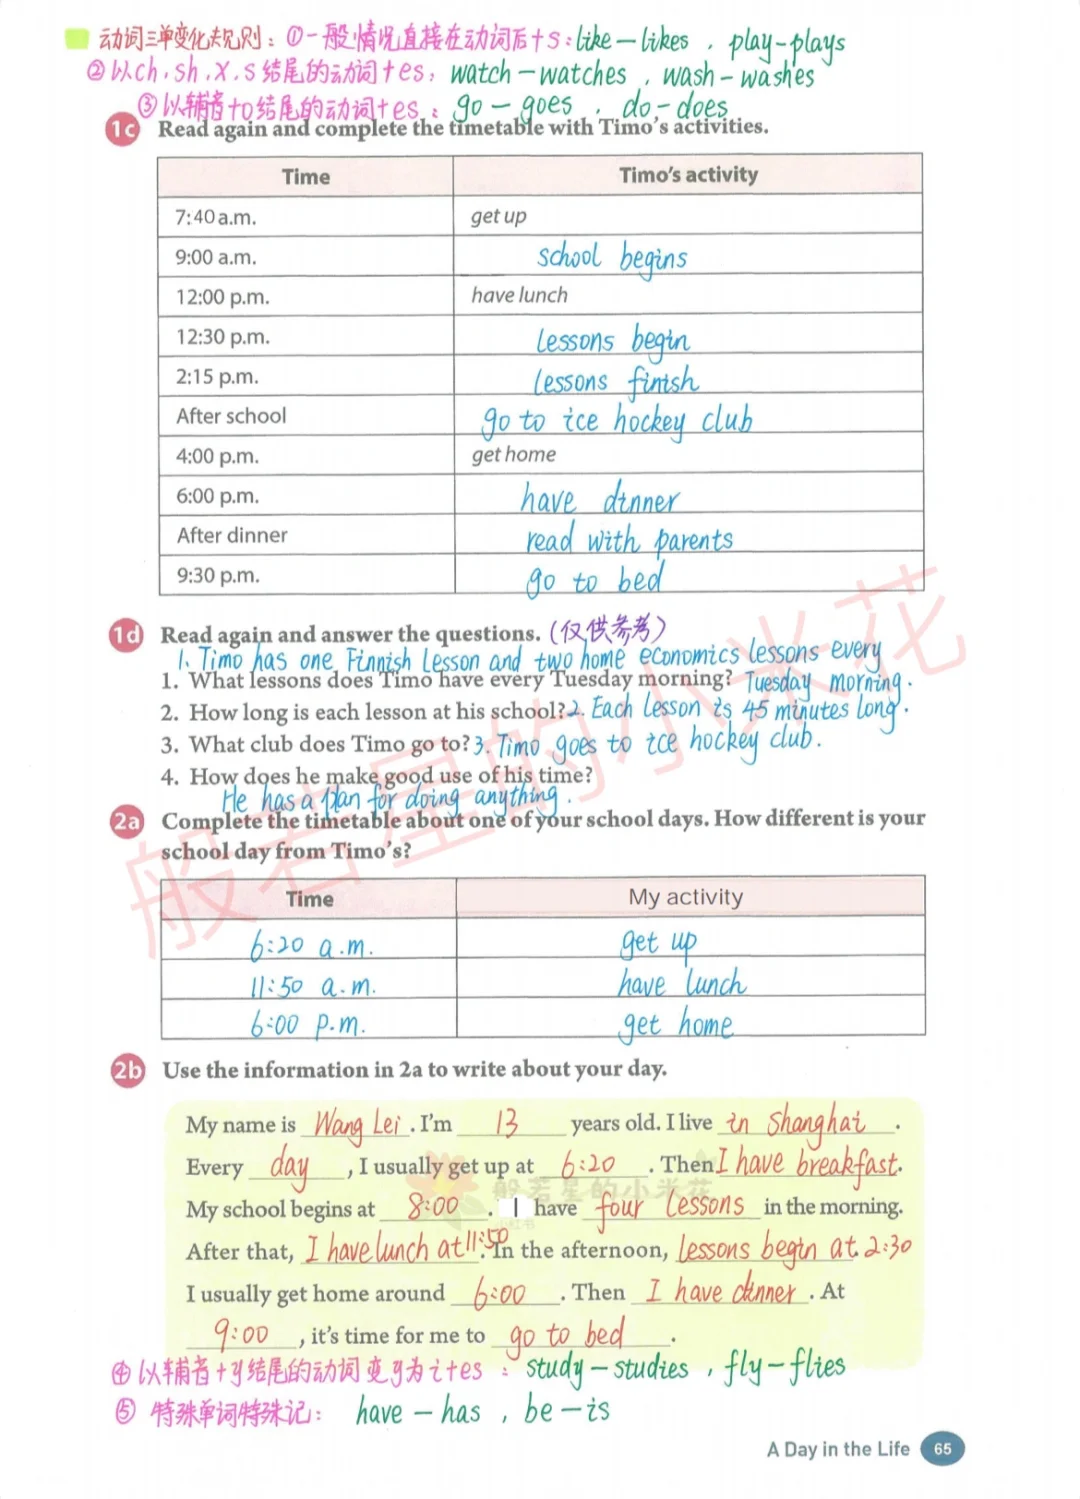 动词三单变化规则：①一般情况直接在动词后+s：like—likes，play—plays
②以ch，sh，x，s结尾的动词+es：watch—watches，wash—washes
③以辅音+o结尾的动词+es：go—goes，do—does
1c Read again and complete the timetable with Timo's activities.
Time Timo's activity
7:40 a.m. get up
9:00 a.m. school begins
12:00 p.m. have lunch
12:30 p.m. lessons begin
2:15 p.m. lessons finish
After school go to ice hockey club
4:00 p.m. get home
6:00 p.m. have dinner
After dinner read with parents
9:30 p.m. go to bed
1d Read again and answer the questions.（仅供参考）
1. Timo has one Finnish Lesson and two home economics lessons every
1. What lessons does Timo have every Tuesday morning? Tuesday morning.
2. How long is each lesson at his school? 2. Each lesson is 45 minutes long.
3. What club does Timo go to? 3. Timo goes to ice hockey club.
4. How does he make good use of his time?
He has a plan for doing anything.
2a Complete the timetable about one of your school days. How different is your
school day from Timo's?
Time My activity
6:20 a.m. get up
11:50 a.m. have lunch
6:00 p.m. get home
2b Use the information in 2a to write about your day.
My name is Wang Lei. I'm 13 years old. I live in Shanghai.
Every day, I usually get up at 6:20. Then I have breakfast.
My school begins at 8:00. I have four lessons in the morning.
After that, I have lunch at 11:50. In the afternoon, lessons begin at 2:30.
I usually get home around 6:00. Then I have dinner. At
9:00, it's time for me to go to bed.
④以辅音+y结尾的动词变y为i+es：study—studies，fly—flies
⑤特殊单词特殊记：have—has，be—is
A Day in the Life 65
般若星的小米花
般若星的小米花
小红书